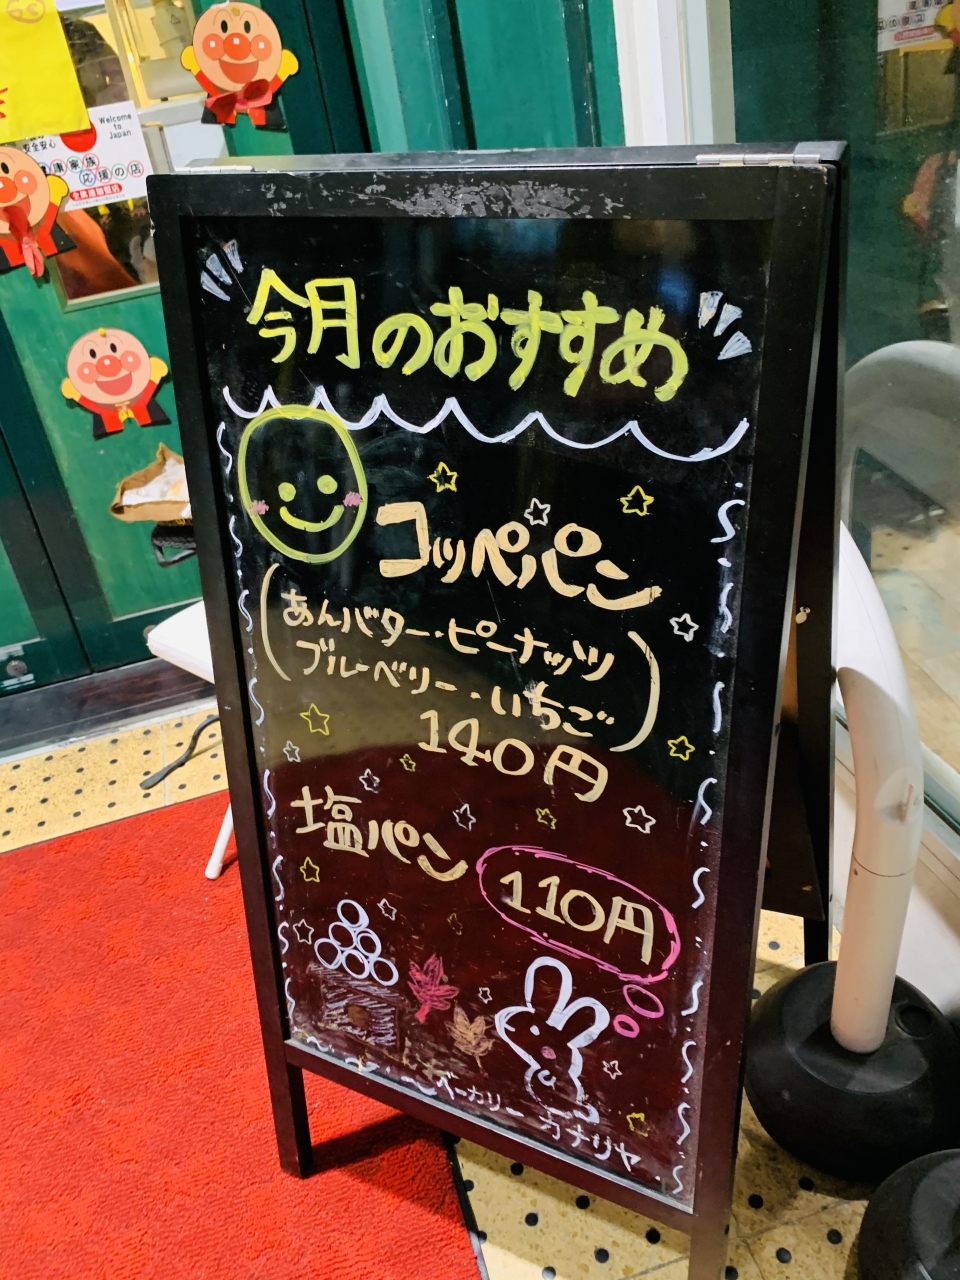 Welcome
to
Japan
安全安心
健康家族
応援の店
今月のおすすめ
コッペパン
(あんバター・ピーナッツ
ブルーベリー・いちご)
140円
塩パン
110円
ベーカリー カナリヤ